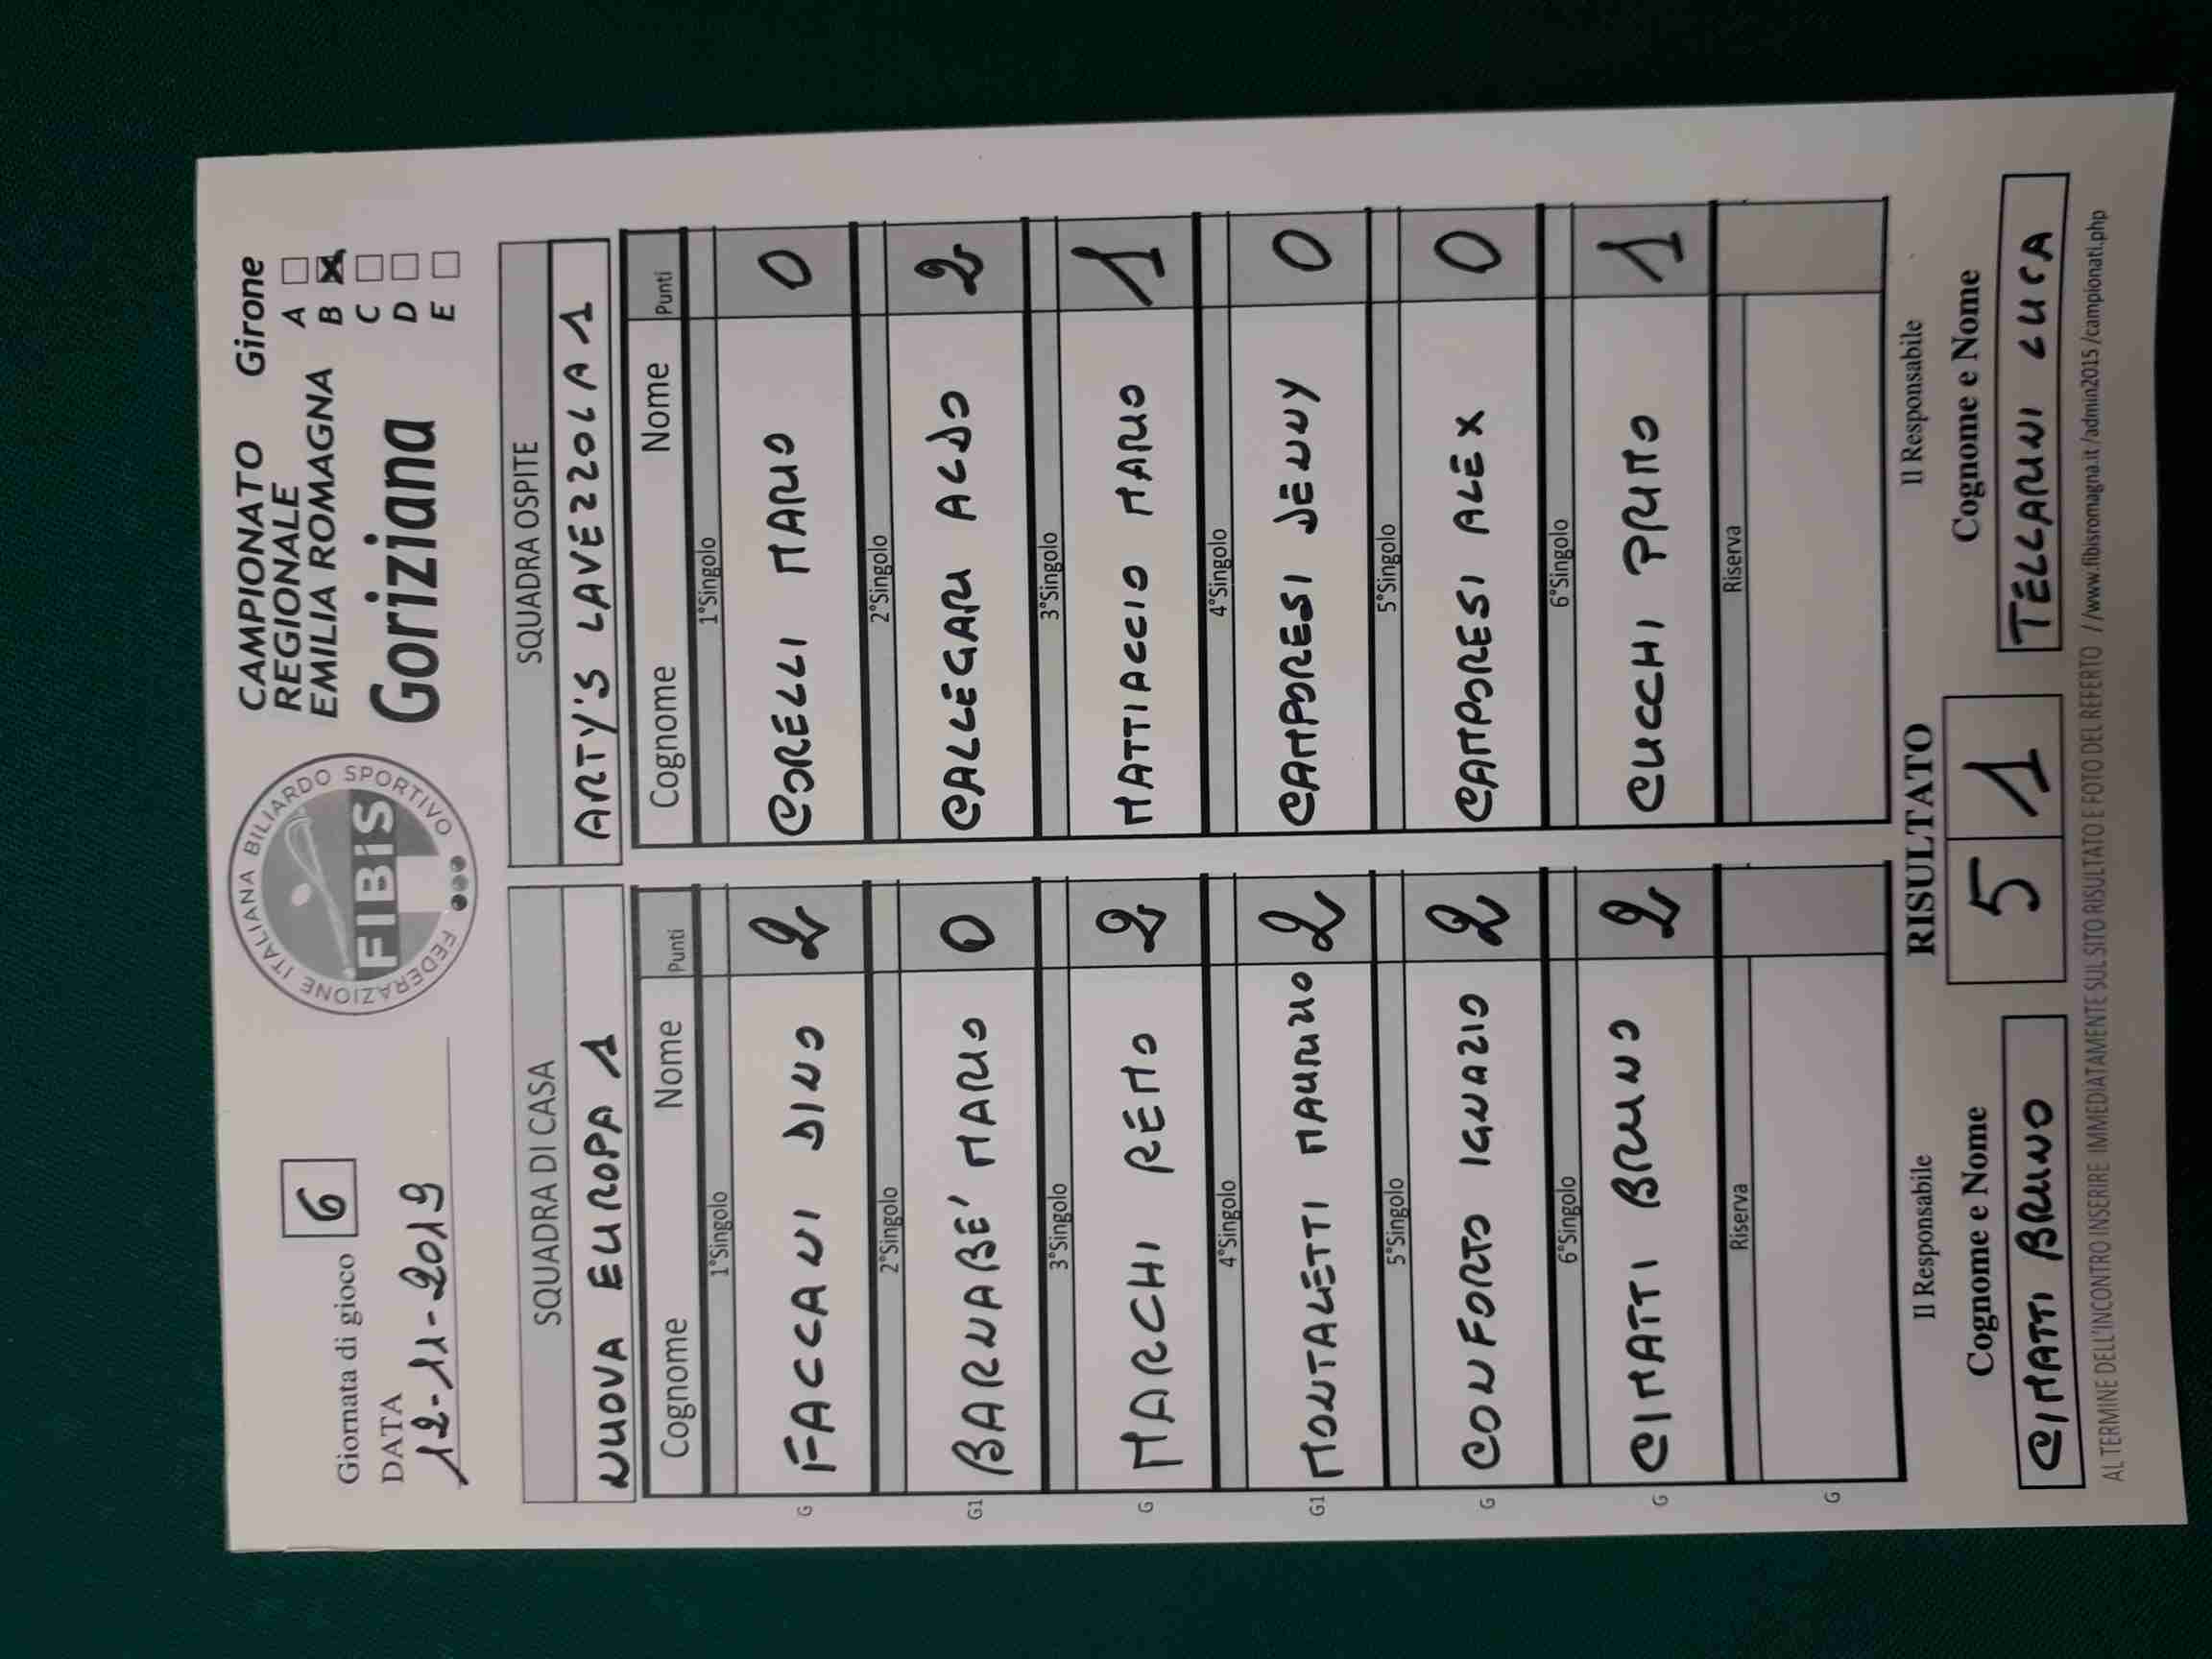 Giornata di gioco 6
DATA
12-11-2019
FEDERAZIONE ITALIANA BILIARDO SPORTIVO
FIBiS
CAMPIONATO
REGIONALE
EMILIA ROMAGNA
Goriziana
Girone
A
B X
C
D
E
SQUADRA DI CASA SQUADRA OSPITE
NUOVA EUROPA 1 ARTY'S LAVEZZOLA 1
Cognome Nome Punti Cognome Nome Punti
1°Singolo 1°Singolo
G FACCANI DINO 2 CORELLI MARIO 0
2°Singolo 2°Singolo
G1 BARNABE' MARIO 0 CALLEGARI ALDO 2
3°Singolo 3°Singolo
G MARCHI REMO 2 MATTIACCIO MARIO 1
4°Singolo 4°Singolo
G1 MONTALETTI MAURIZIO 2 CAMPORESI JENNY 0
5°Singolo 5°Singolo
G CONFORTO IGNAZIO 2 CAMPORESI ALEX 0
6°Singolo 6°Singolo
G CIMATTI BRUNO 2 CUCCHI PRIMO 1
Riserva Riserva
G
Il Responsabile RISULTATO Il Responsabile
Cognome e Nome 5 1 Cognome e Nome
CIMATTI BRUNO TELLARINI LUCA
AL TERMINE DELL'INCONTRO INSERIRE IMMEDIATAMENTE SUL SITO RISULTATO E FOTO DEL REFERTO //www.fibisromagna.it/admin2015/campionati.php